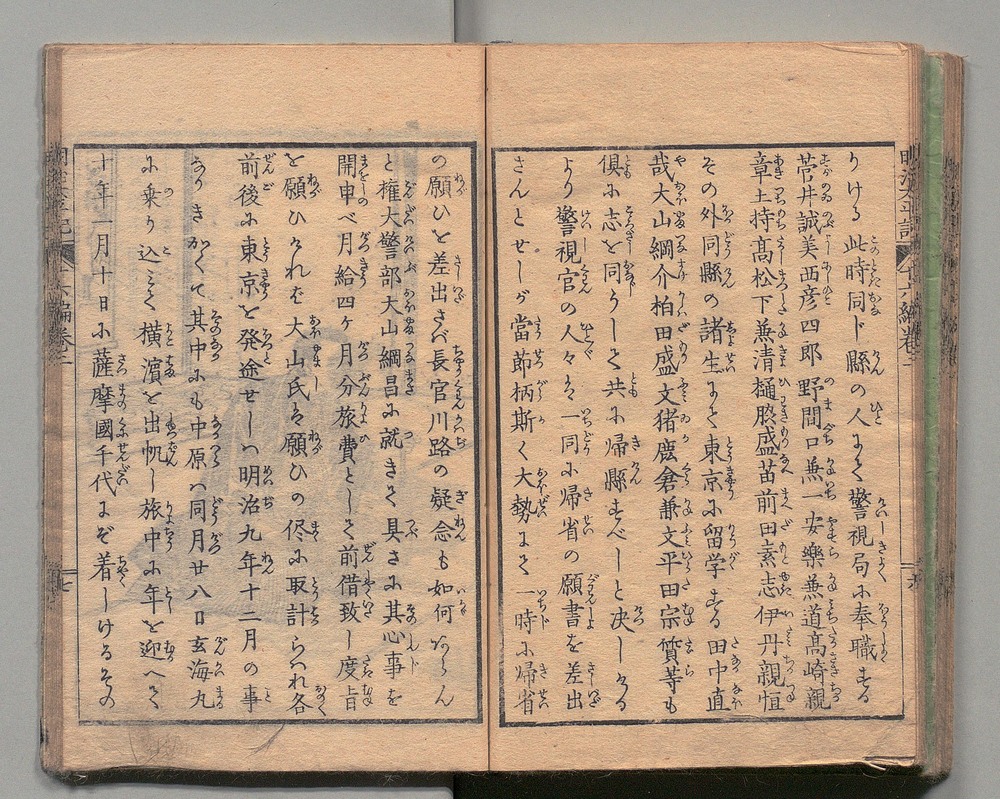 りける此時同じ縣の人にて警視局に奉職する
菅井誠美西彦四郎野間口無一安樂無道高崎親
章土持高松下無清樋脇盛苗前田素志伊丹親恒
その外同縣の諸生にて東京に留学する田中直
哉大山綱介柏田盛文猪鹿倉兼文平田宗質等も
倶に志を同うして共に帰縣すべしと決しける
より警視官の人々は一同に帰省の願書を差出
さんとせしが當節柄斯く大勢にて一時に帰省
の願ひを差出さば長官川路の疑念も如何ならん
と権大警部大山綱昌に就きて具さに其心事を
開申べ月給四ヶ月分旅費として前借致し度旨
を願ひければ大山氏は願ひの侭に取計らはれ各
前後に東京を発途せしは明治九年十二月の事
なりきかくて其中にも中原は同月廿八日玄海丸
に乗り込みて横濱を出帆し旅中に年を迎へて
十年一月十日に薩摩國千代にぞ着しけるその